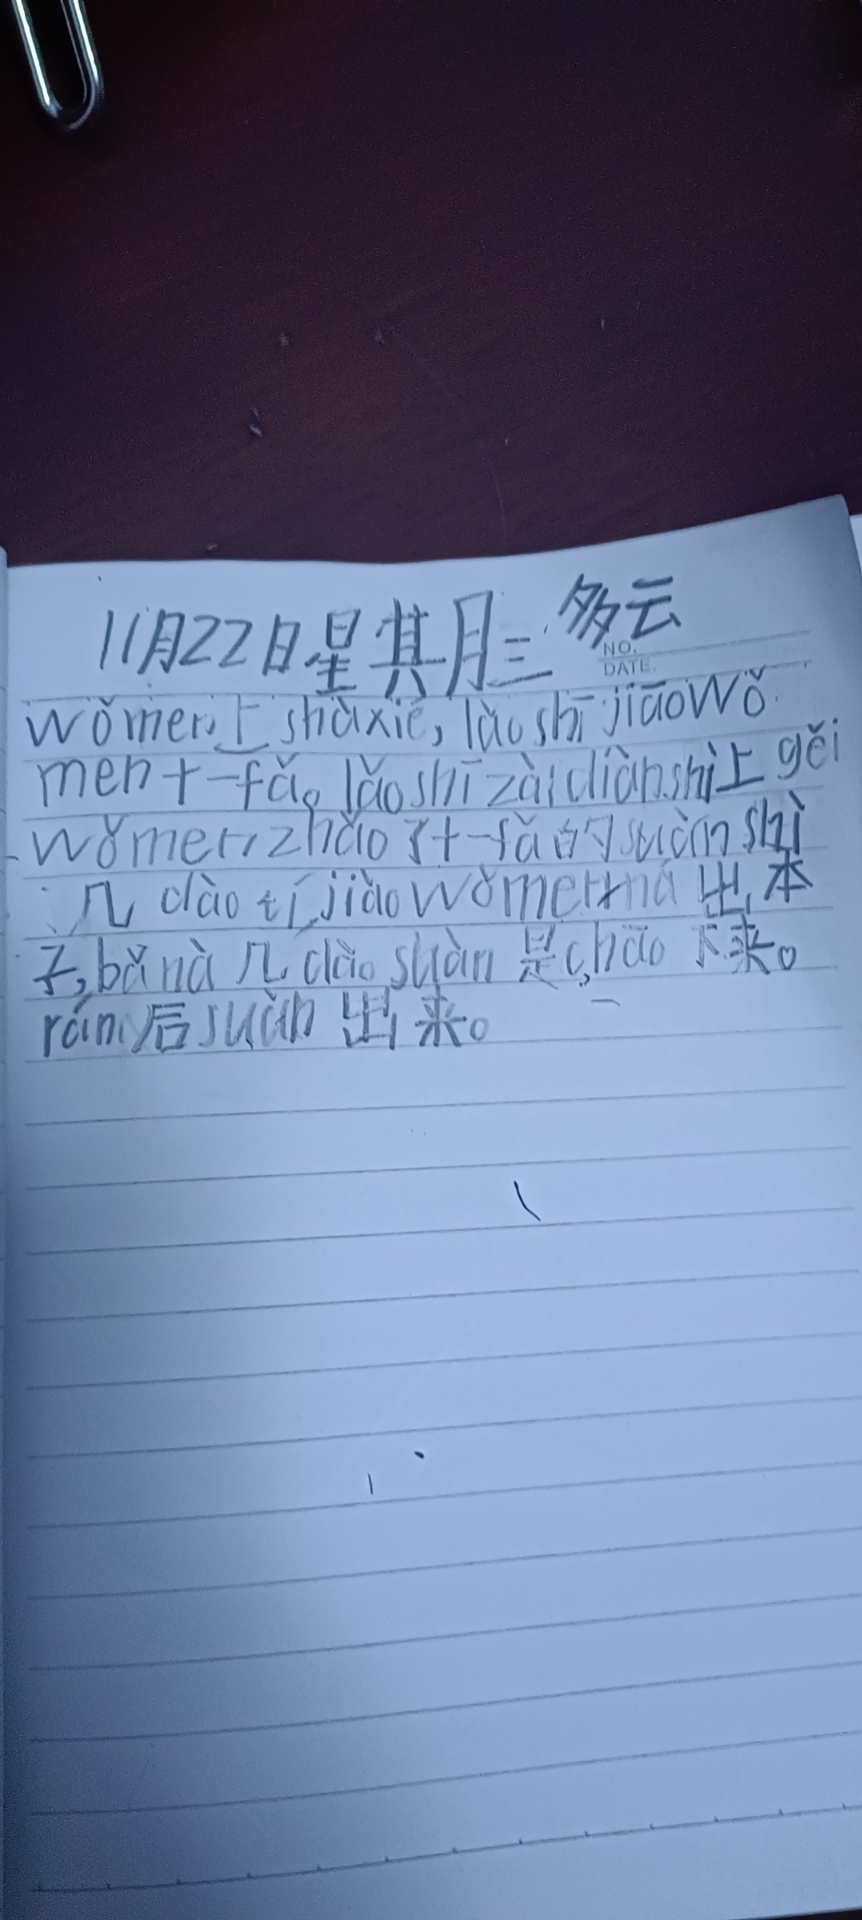 11月22日星期三 多云
NO.
DATE.
wǒmen上shùxié, lǎoshī jiāowǒ
men十一fǎ。lǎoshī zài diànshì上gěi
wǒmen zhǎo了十一fǎ的suàn shì
几dào tí, jiào wǒmen ná出本
子, bǎ nà几dào suàn是chāo下来。
rán后suàn出来。